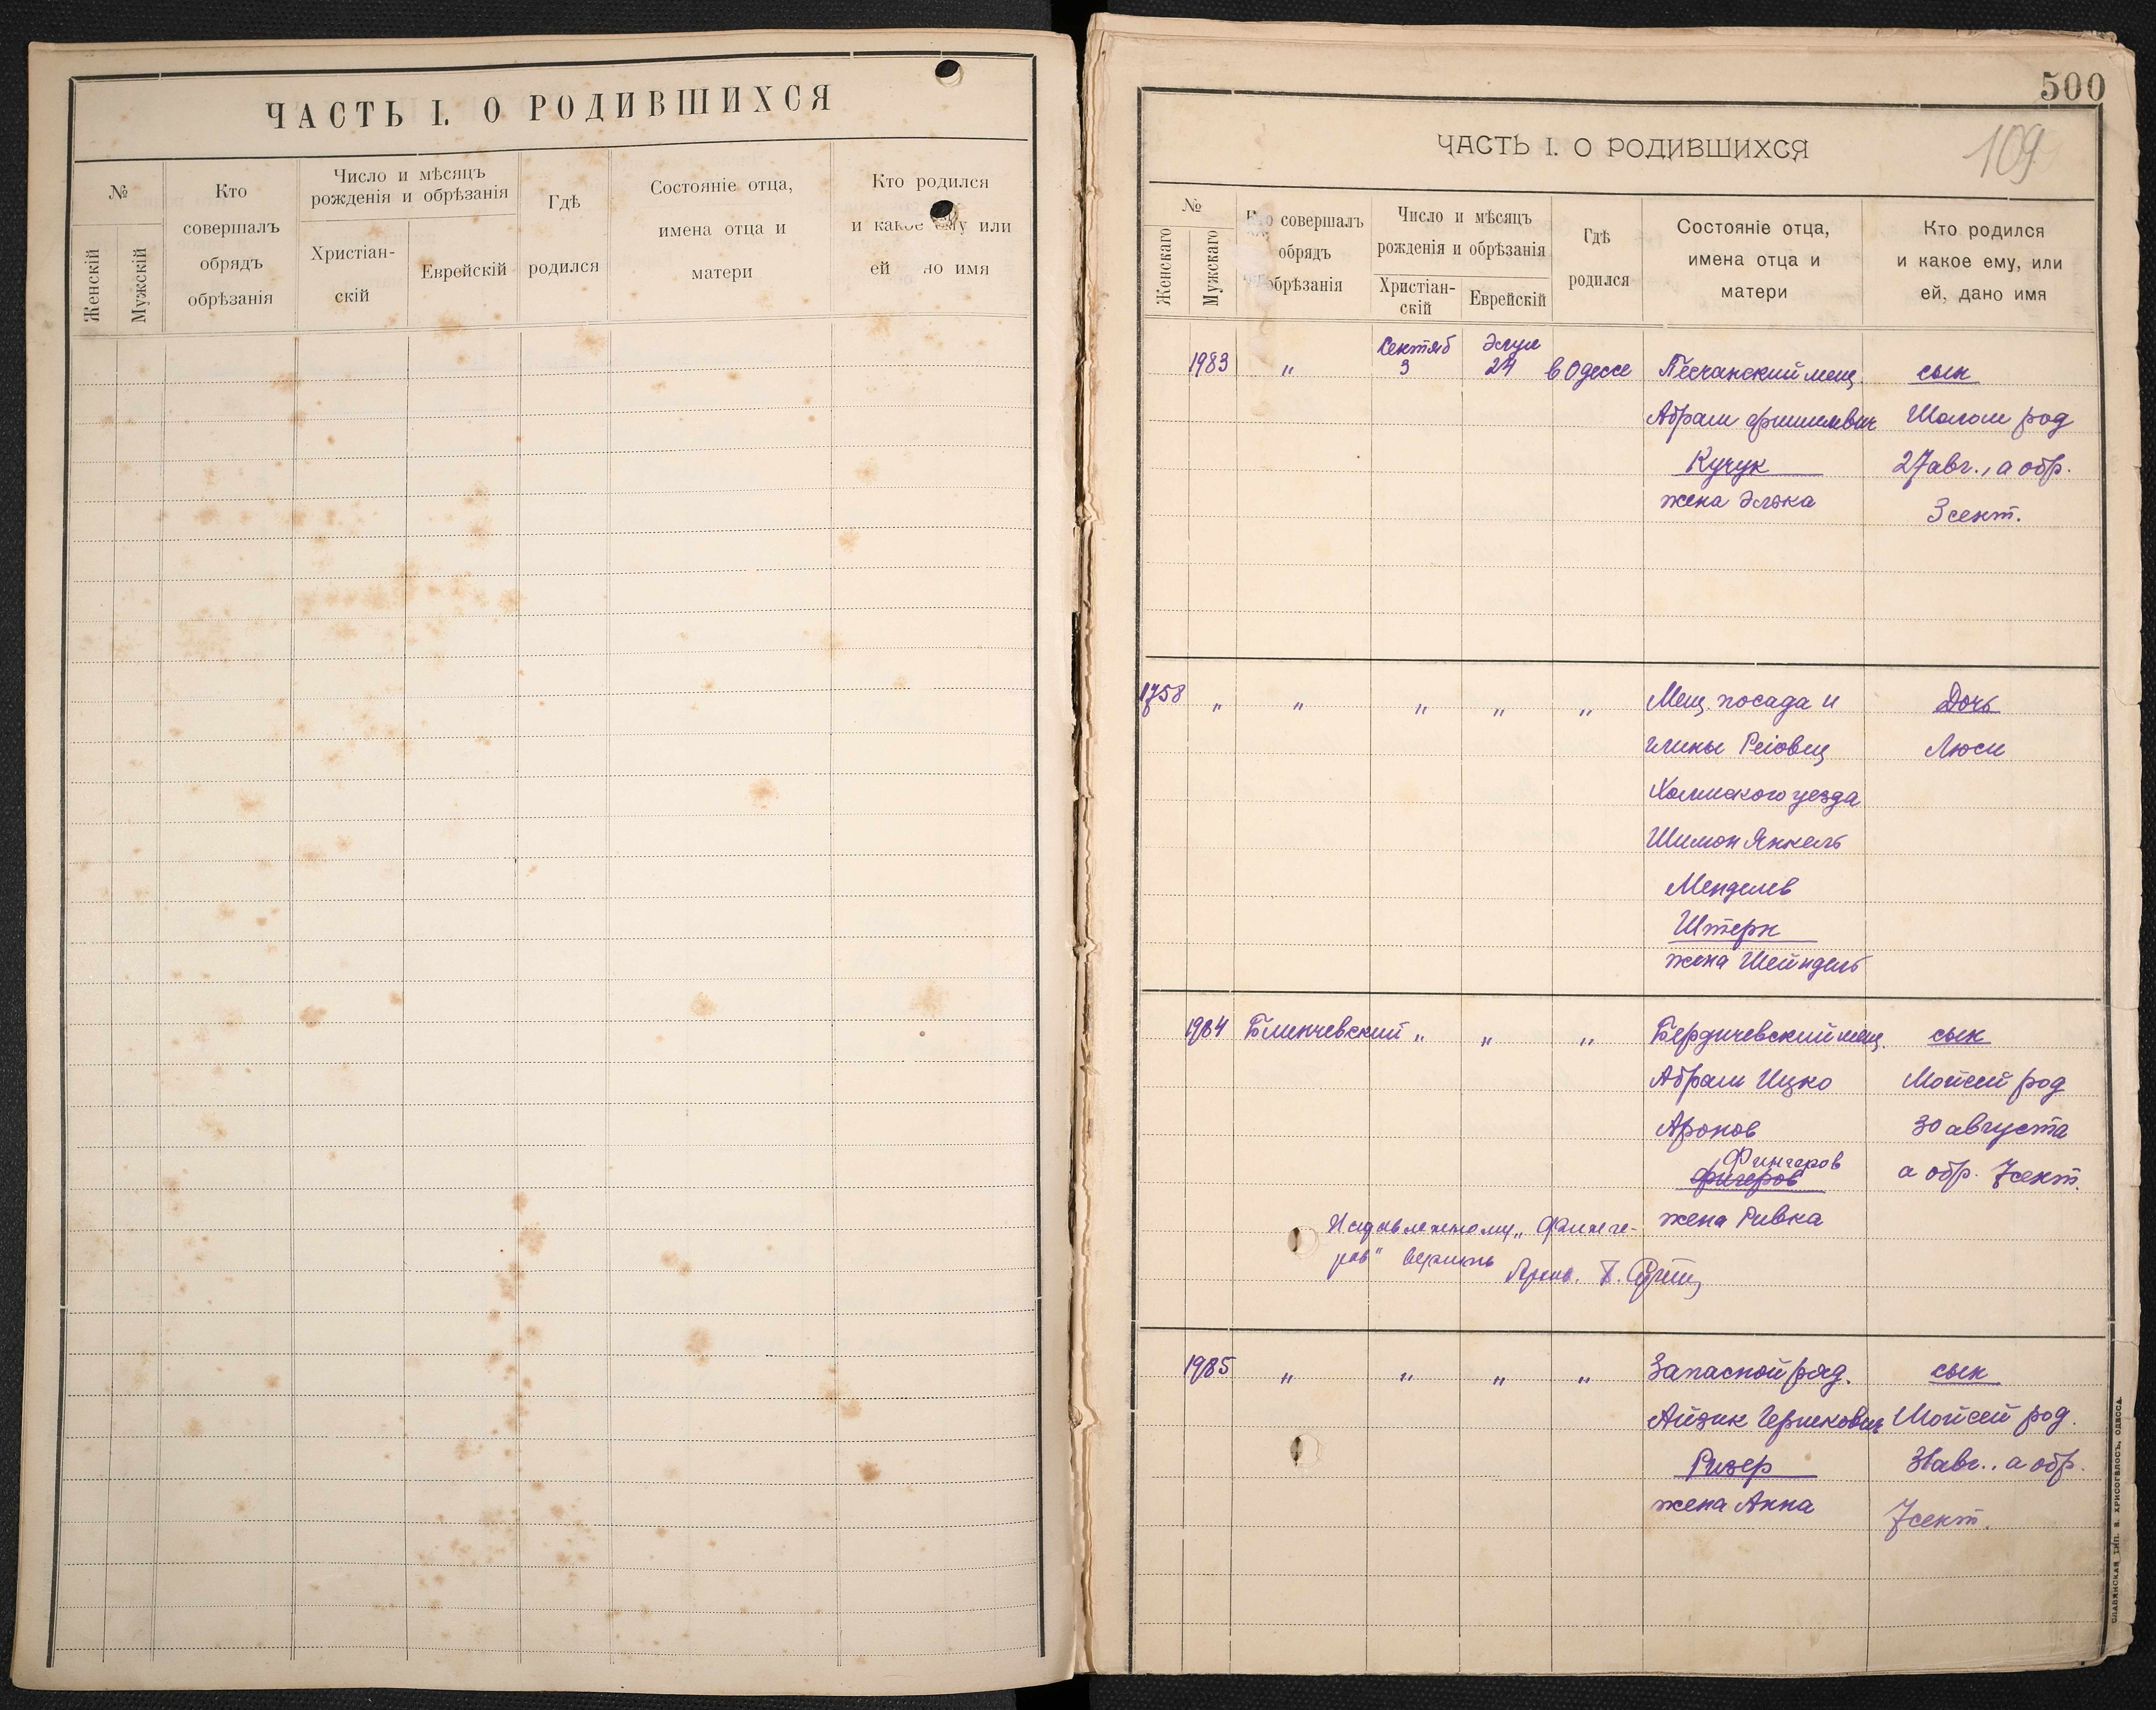 ЧАСТЬ I. О РОДИВШИХСЯ
№
Женскій
Мужскій
Кто
совершалъ
обрядъ
обрѣзанія
Число и мѣсяцъ
рожденія и обрѣзанія
Христіан-
скій
Еврейскій
Гдѣ
родился
Состояніе отца,
имена отца и
матери
Кто родился
и какое ему или
ей но имя
500
109
ЧАСТЬ I. О РОДИВШИХСЯ
№
Женскаго
Мужскаго
Кто совершалъ
обрядъ
обрѣзанія
Число и мѣсяцъ
рожденія и обрѣзанія
Христіан-
скій
Еврейскій
Гдѣ
родился
Состояніе отца,
имена отца и
матери
Кто родился
и какое ему, или
ей, дано имя
1983 " Сентяб 3 Элул 24 в Одессе Песчанский мещ. сын
Абрам Фишилевич Шолом род
Кучук 27 авг., а обр.
жена Элька 3 сент.
1758 " " " " " Мещ. посада и Дочь
глины Реiовец Люси
Холмского уезда
Шимон Янкель
Менделев
Штерн
жена Шейндель
1984 Блинчевский " " " Бердичевский мещ. сын
Абрам Ицко Мойсей род
Аронов 30 августа
Фингеров
Фигеров а обр. 7 сент.
жена Ривка
Надписаному „Финге-
ров" верить
1985 " " " " Запасной ряд. сын
Айзик Гершкович Мойсей род.
Ризер 31 авг.. а обр.
жена Анна 7 сент.
СЛАВЯНСКАЯ ТИП. Н. ХРИСОГЕЛОСЪ, ОДЕССА.